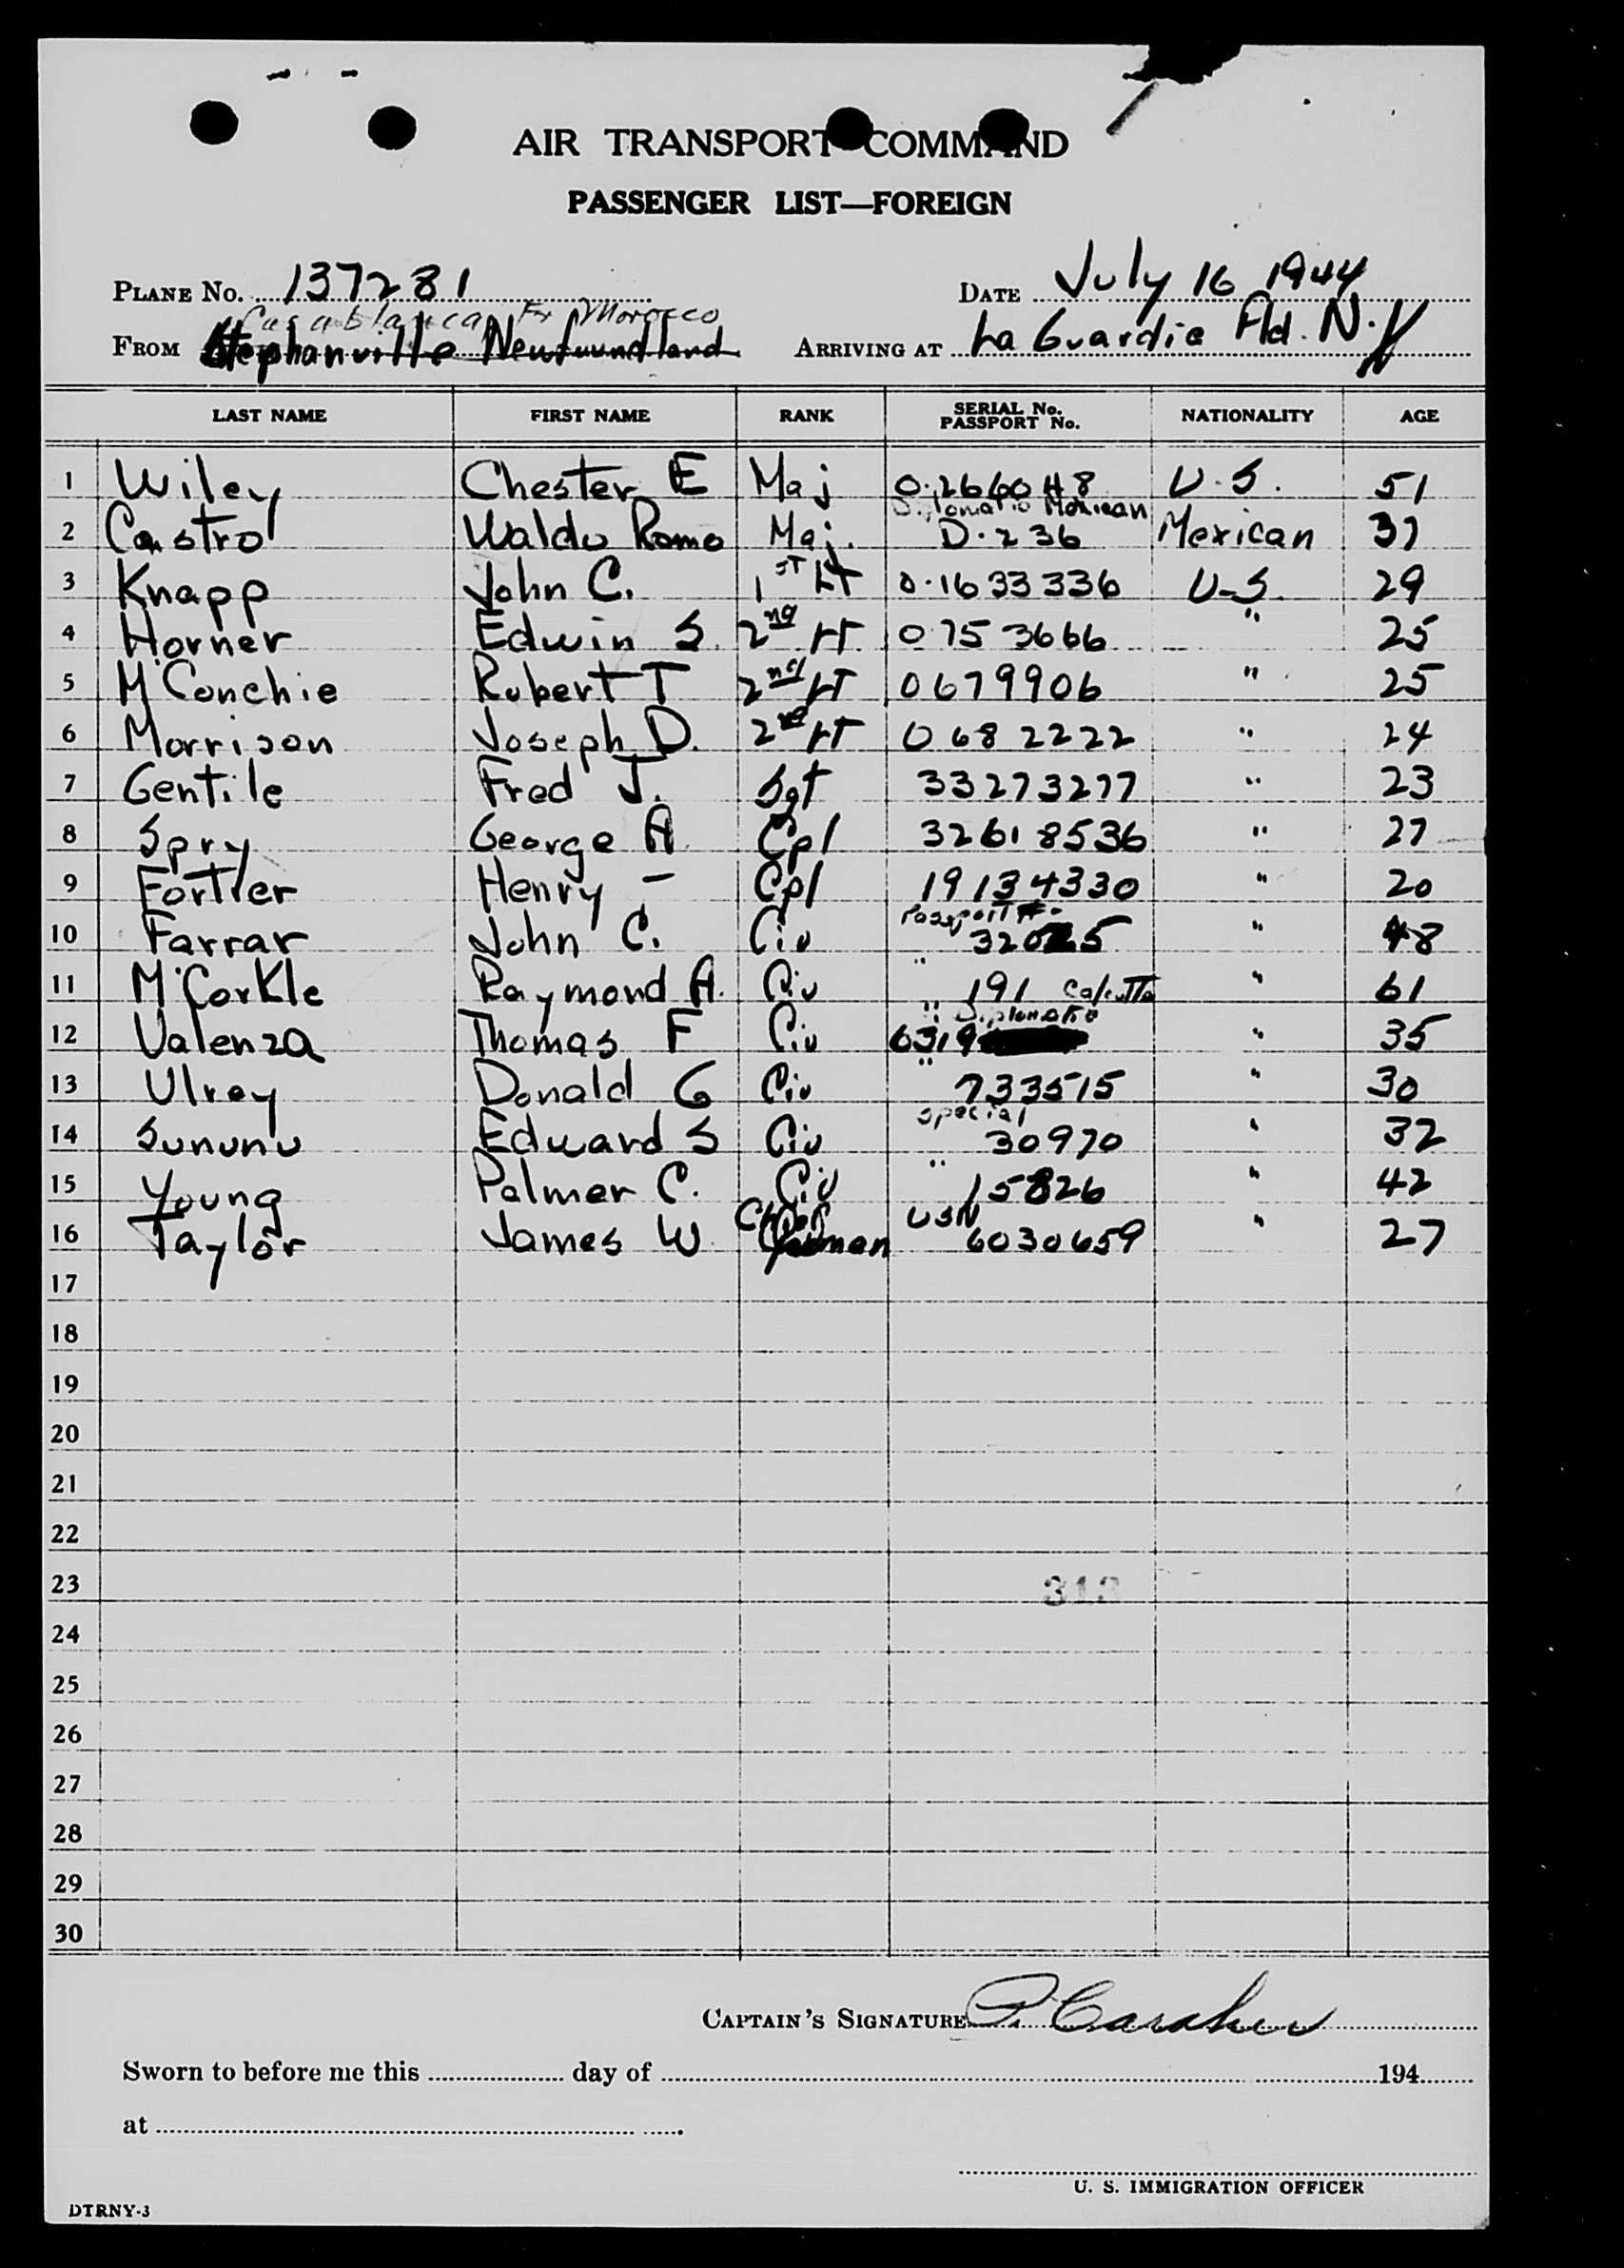 AIR TRANSPORT COMMAND
PASSENGER LIST—FOREIGN
PLANE No. 137281 DATE July 16 1944
Casablanca, Fr Morocco
FROM Stephanville Newfoundland ARRIVING AT La Guardia Fld. N.Y
LAST NAME FIRST NAME RANK SERIAL No. PASSPORT No. NATIONALITY AGE
1 Wiley Chester E Maj 0.266048 U.S. 51
Diplomatic Mexican
2 Castro Waldo Romo Maj. D.236 Mexican 37
3 Knapp John C. 1st LT 0.1633336 U-S. 29
4 Horner Edwin S. 2nd LT 0753666 " 25
5 McConchie Robert T 2nd LT 0679906 " 25
6 Morrison Joseph D. 2nd LT 0682222 " 24
7 Gentile Fred J. Sgt 33273277 " 23
8 Spry George A Cpl 32618536 " 27
9 Fortier Henry - Cpl 19134330 " 20
Passport #-
10 Farrar John C. Civ 32025 " 48
11 McCorkle Raymond A. Civ " 191 Calcutta " 61
" Diplomatic
12 Valenza Thomas F Civ 6319 " 35
13 Ulrey Donald G Civ " 733515 " 30
Special
14 Sununu Edward S Civ 30970 " 32
15 Young Palmer C. Civ " 15826 " 42
Chief USN
16 Taylor James W. Yeoman 6030659 " 27
17
18
19
20
21
22
23 313
24
25
26
27
28
29
30
CAPTAIN'S SIGNATURE P. Caraher
Sworn to before me this day of 194
at
U. S. IMMIGRATION OFFICER
DTRNY-3